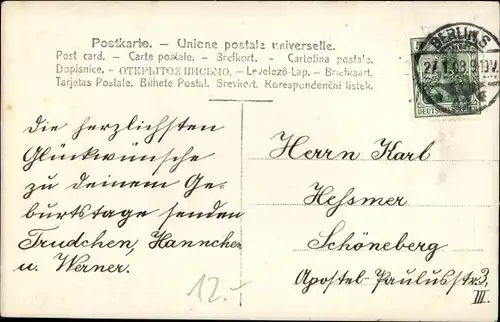 Postkarte. - Unione postale universelle.
Post card. - Carte postale. - Brefkort. - Cartolina postale.
Dopisnice. - ОТКРЫТОЕ ПИСЬМО. - Levelező-Lap. - Briefkaart.
Tarjetas Postale. Bilhete Postal. Brevkort. Korespondenční listek.
BERLIN S
27 1.09 9-10V.
DEUTSCHES REICH
Die herzlichsten
Glückwünsche
zu deinem Ge-
burtstage senden
Trudchen, Hannchen
u. Werner.
12.-
Herrn Karl
Hessmer
Schöneberg
Apostel-Paulusstr. 3,
III.